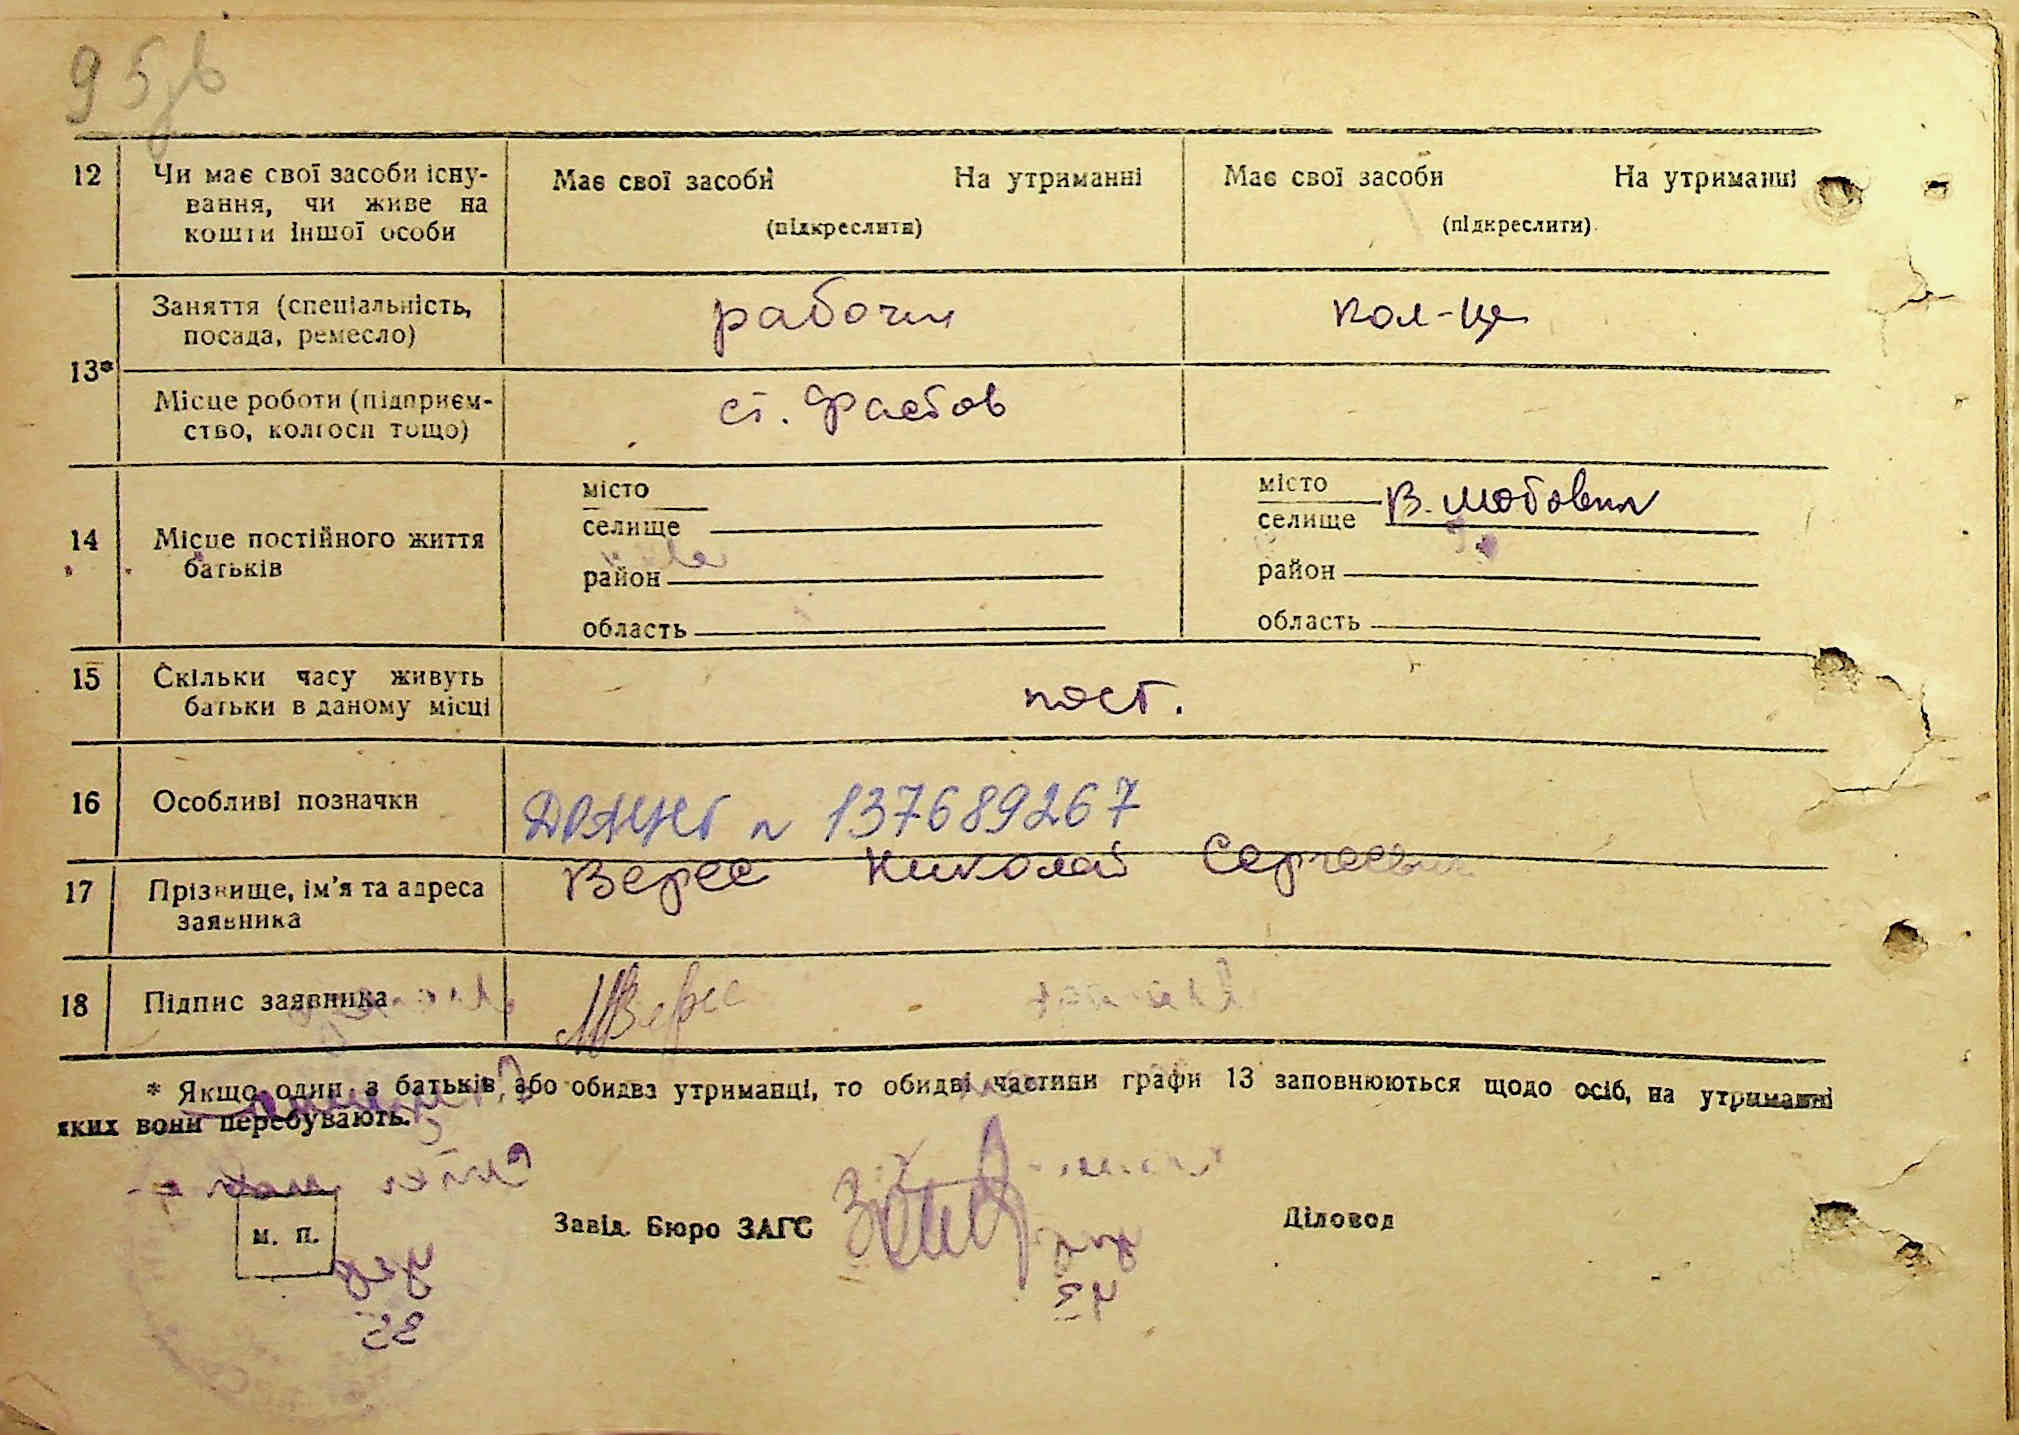 95
12 Чи має свої засоби існу- Має свої засоби На утриманні Має свої засоби На утриманні
вання, чи живе на (підкреслити) (підкреслити)
кошти іншої особи
Заняття (спеціальність, рабочий кол-це
посада, ремесло)
13*
Місце роботи (підприєм- ст. Фастов
ство, колгосп тощо)
місто місто
селище селище В. Мотовил
14 Місце постійного життя
батьків
район район
область область
15 Скільки часу живуть пост.
батьки в даному місці
16 Особливі позначки 137689267
17 Прізвище, ім'я та адреса Верес Николай Сергеевич
заявника
18 Підпис заявника МВерес
* Якщо один з батьків або обидва утриманці, то обидві частини графи 13 заповнюються щодо осіб, на утриманні
яких вони перебувають.
м. п. Завід. Бюро ЗАГС Діловод